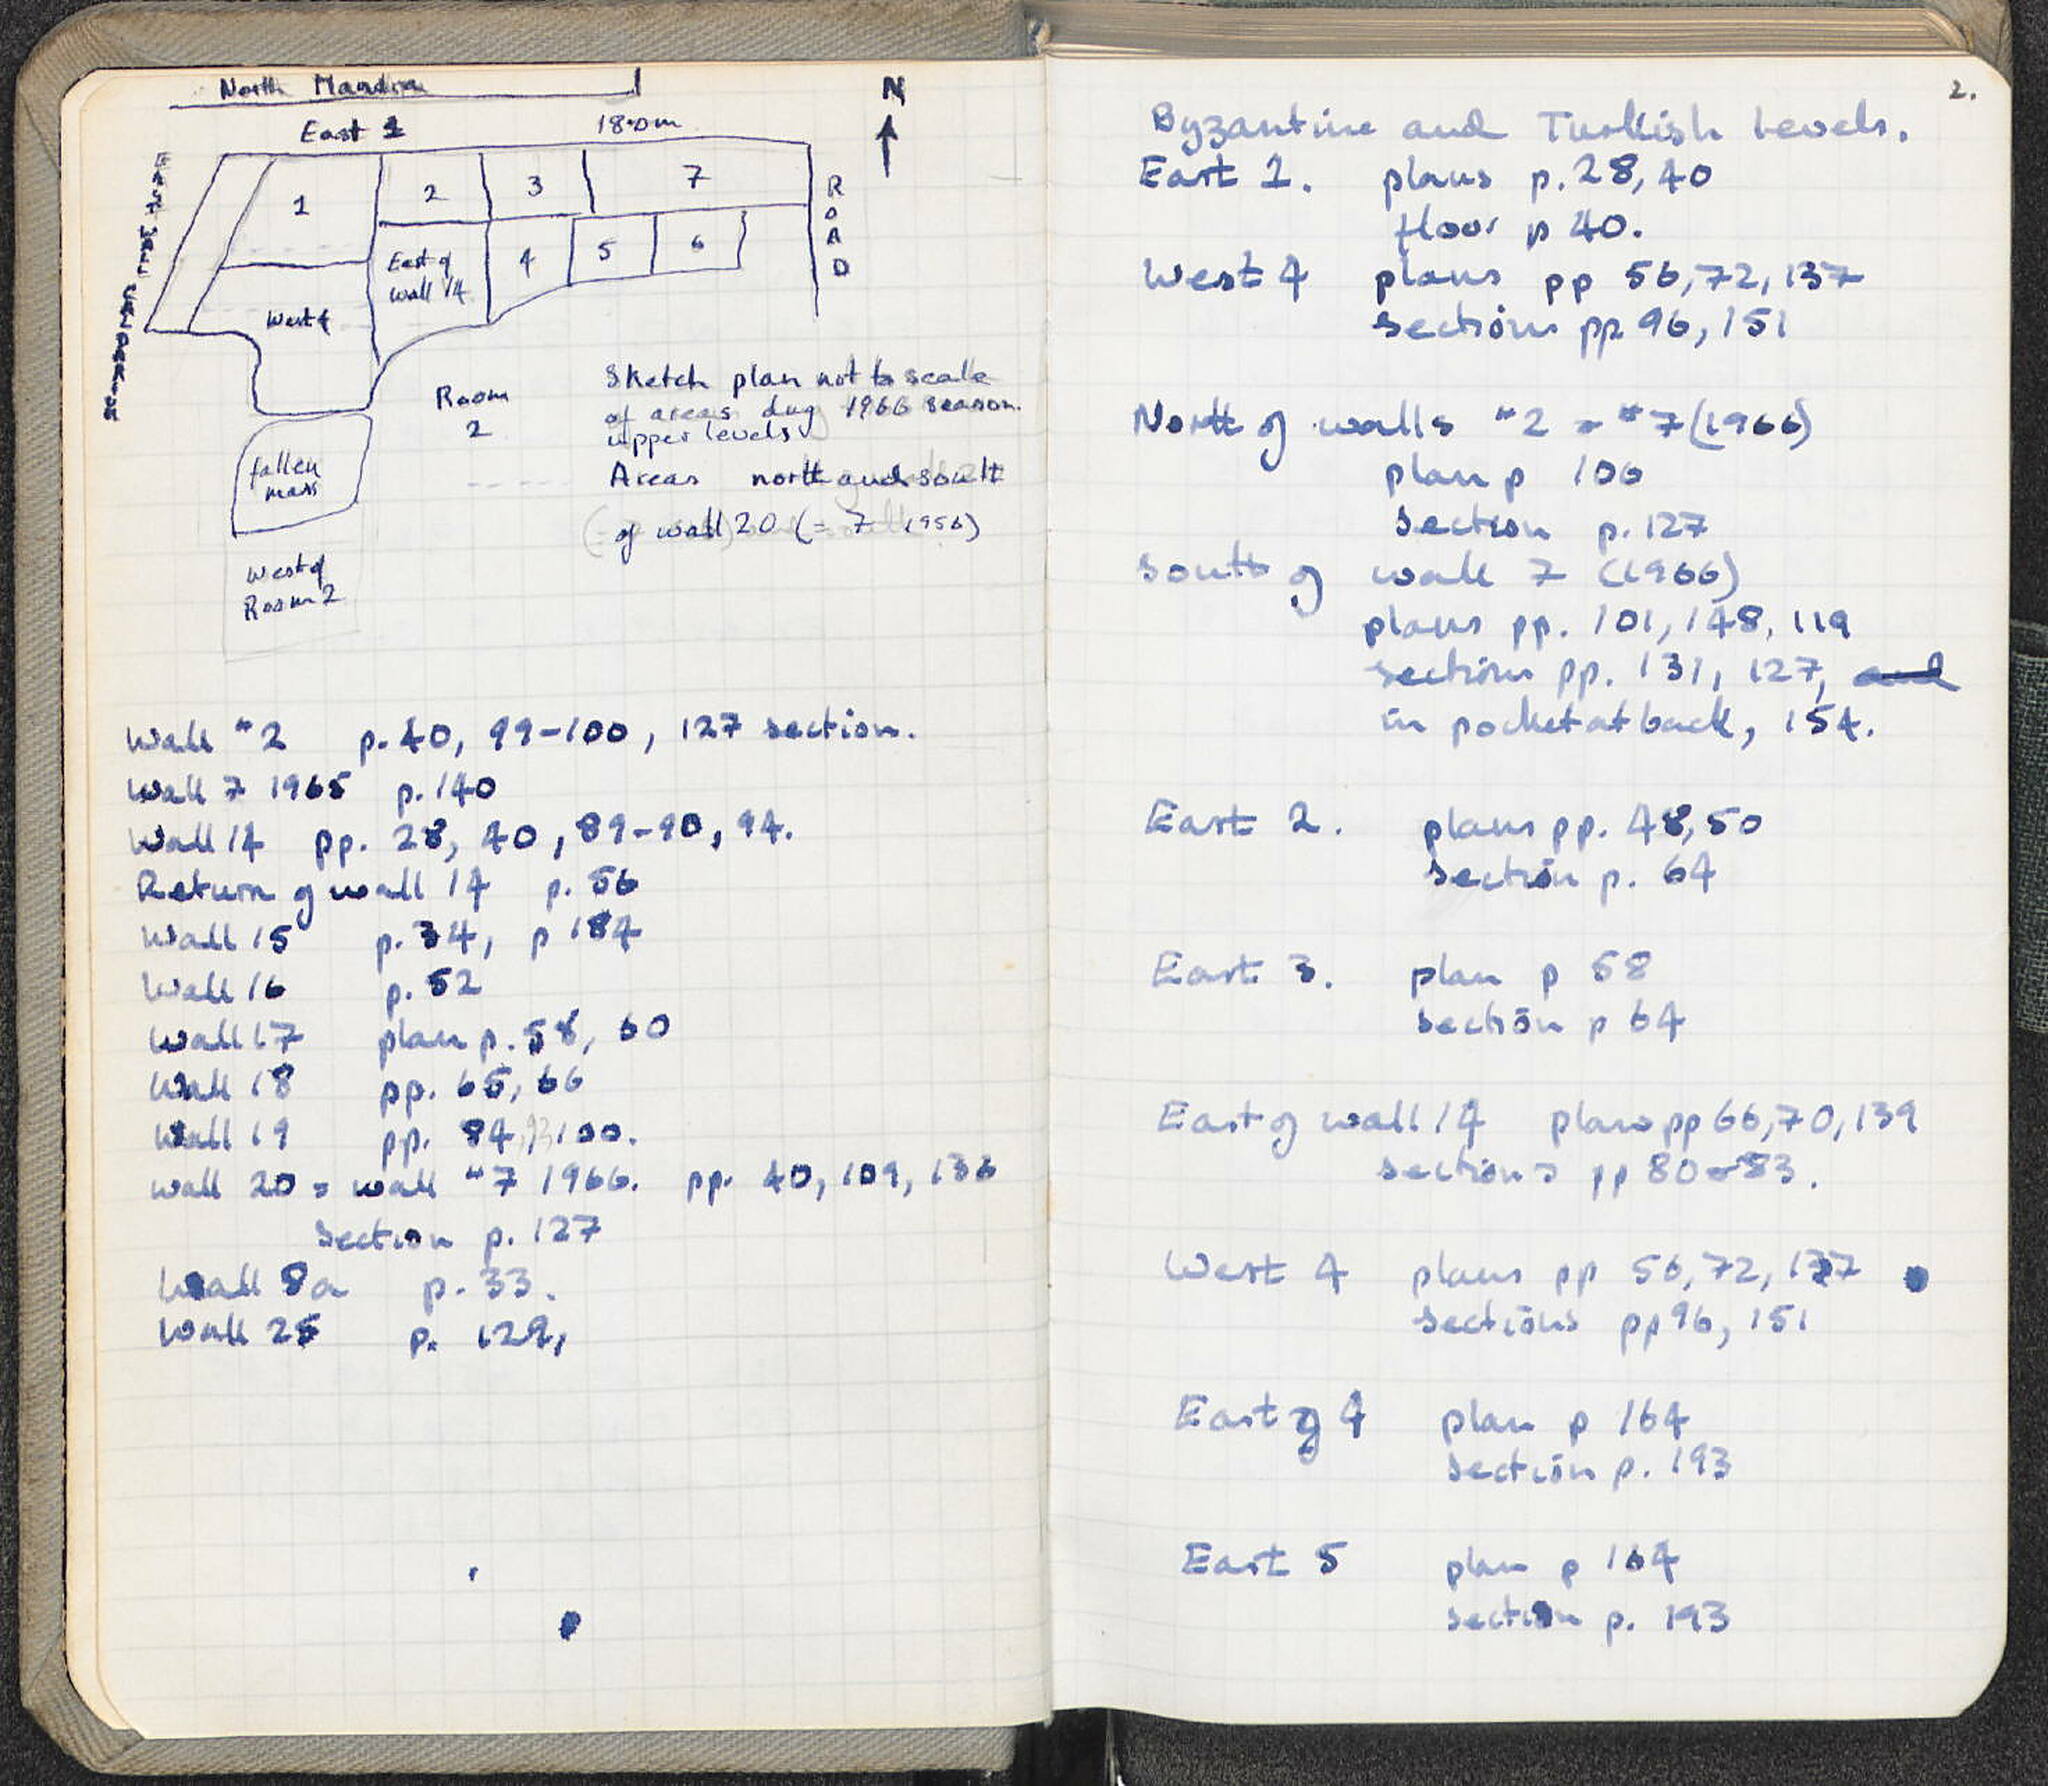 North Mandra
N
East 1 18.0m
1
2
3
7
ROAD
East of
wall 14
4
5
6
West 4
Room
2
Sketch plan not to scale
of areas dug 1966 season.
upper levels
fallen
mass
Areas north and south
of wall 20 (= 7 1956)
West of
Room 2
Wall #2 p. 40, 99-100, 127 section.
Wall 7 1965 p. 140
Wall 14 pp. 28, 40, 89-90, 94.
Return of wall 14 p. 56
Wall 15 p. 34, p 184
Wall 16 p. 52
Wall 17 plan p. 58, 60
Wall 18 pp. 65, 66
Wall 19 pp. 84, 93, 100.
Wall 20 = wall #7 1966. pp. 40, 109, 136
Section p. 127
Wall 8a p. 33.
Wall 25 p. 129,
2.
Byzantine and Turkish Levels.
East 1. plans p. 28, 40
floor p 40.
West 4 plans pp 56, 72, 137
Sections pp 96, 151
North of walls #2 = #7 (1966)
plan p 106
Section p. 127
South of wall 7 (1966)
plans pp. 101, 148, 119
sections pp. 131, 127, and
in pocket at back, 154.
East 2. plans pp. 48, 50
Section p. 64
East 3. plan p 58
Section p 64
East of wall 14 plans pp 66, 70, 139
Sections pp 80-83.
West 4 plans pp 56, 72, 137
Sections pp 96, 151
East of 4 plan p 164
Section p. 193
East 5 plan p 164
Section p. 193